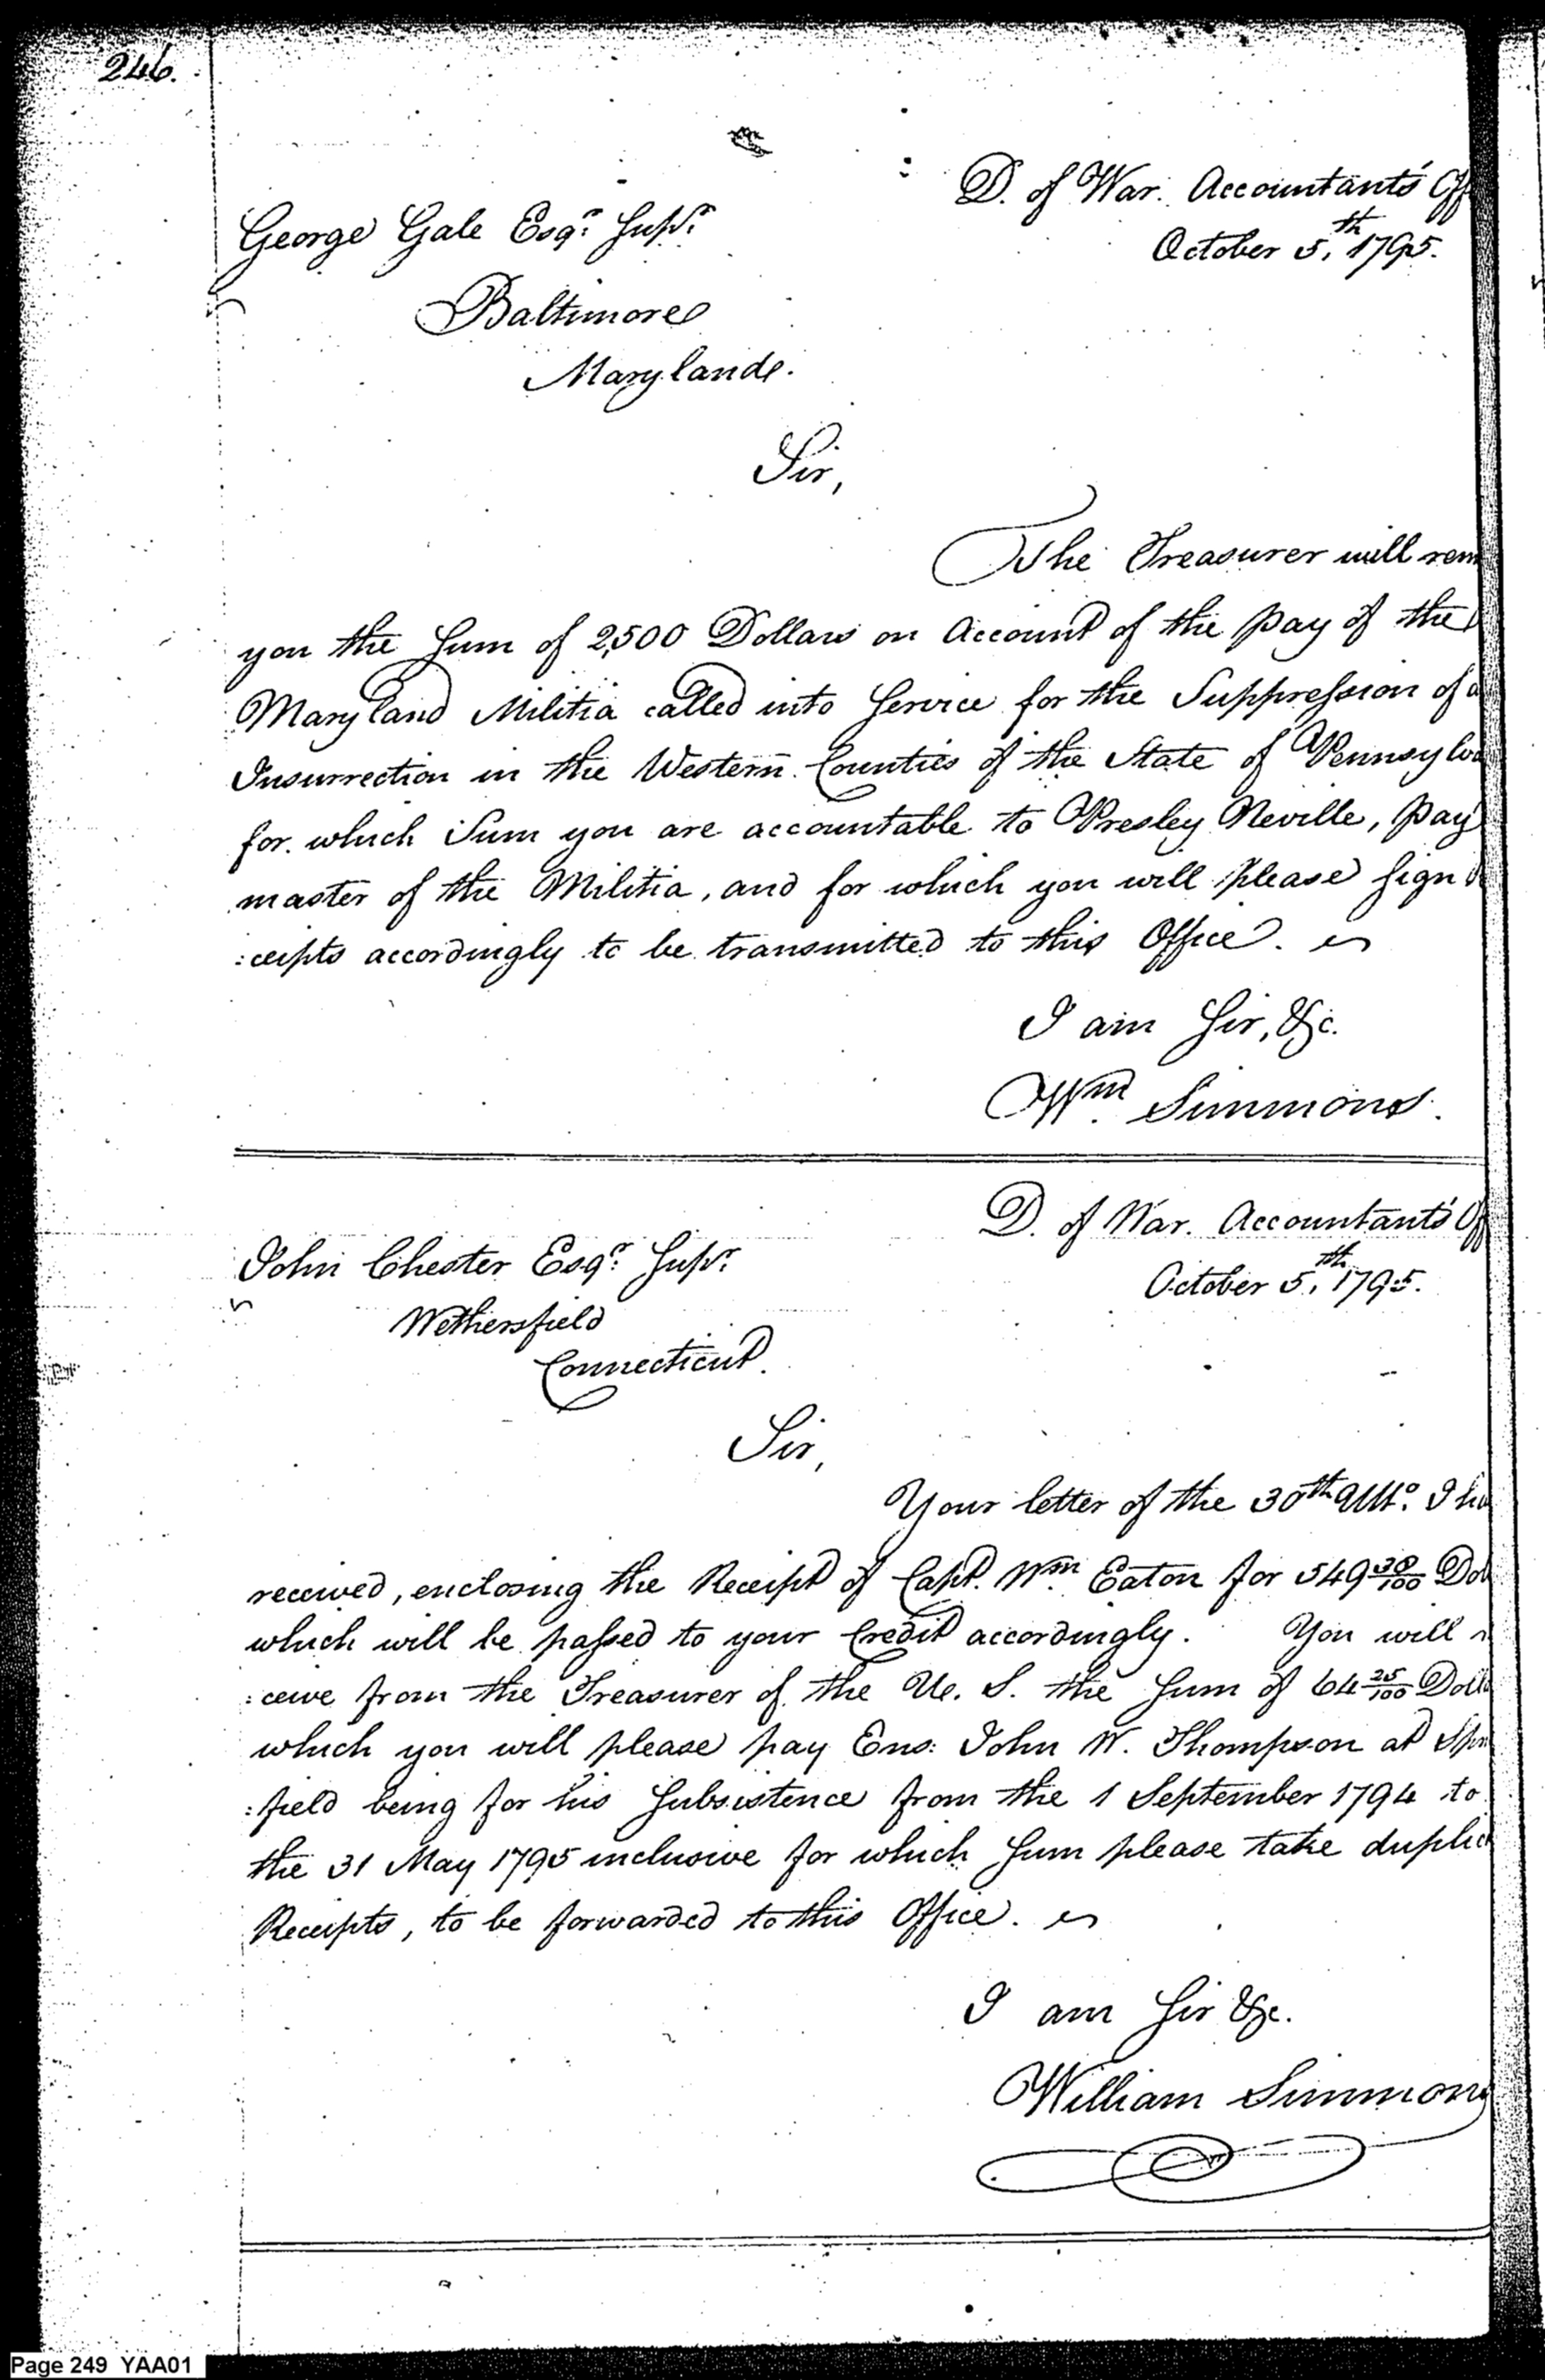 246.
D. of War. Accountants Off
October 5th, 1795.
George Gale Esqr. Supr.
Baltimore
Maryland.
Sir,
The Treasurer will rem
you the Sum of 2,500 Dollars on Account of the pay of the
Maryland Militia called into Service for the Suppression of a
Insurrection in the Western Counties of the State of Pennsylva
for which Sum you are accountable to Presley Neville, Pay
master of the Militia, and for which you will please sign
:ceipts accordingly to be transmitted to this Office.
I am Sir, &c.
Wm. Simmons.
D. of War. Accountants Of
October 5th, 1795.
John Chester Esqr. Supr.
Wethersfield
Connecticut.
Sir,
Your letter of the 30th Ulto. I ha
received, enclosing the Receipt of Capt. Wm Eaton for 549 38/100 Dol
which will be passed to your Credit accordingly. You will
:ceive from the Treasurer of the U. S. the Sum of 64 25/100 Doll
which you will please pay Ens: John W. Thompson at Spr
:field being for his Subsistence from the 1 September 1794 to
the 31 May 1795 inclusive for which Sum please take duplic
Receipts, to be forwarded to this Office.
I am Sir &c.
William Simmons
Page 249 YAA01